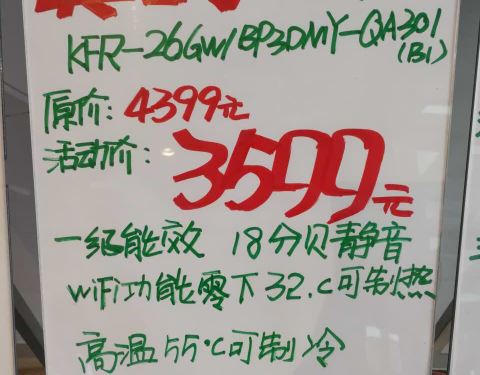 KFR-26GW/BP3DMY-QA301
(B1)
原价: 4399元
活动价: 3599元
一级能效 18分贝静音
WiFi功能零下32.c可制热
高温55°C可制冷